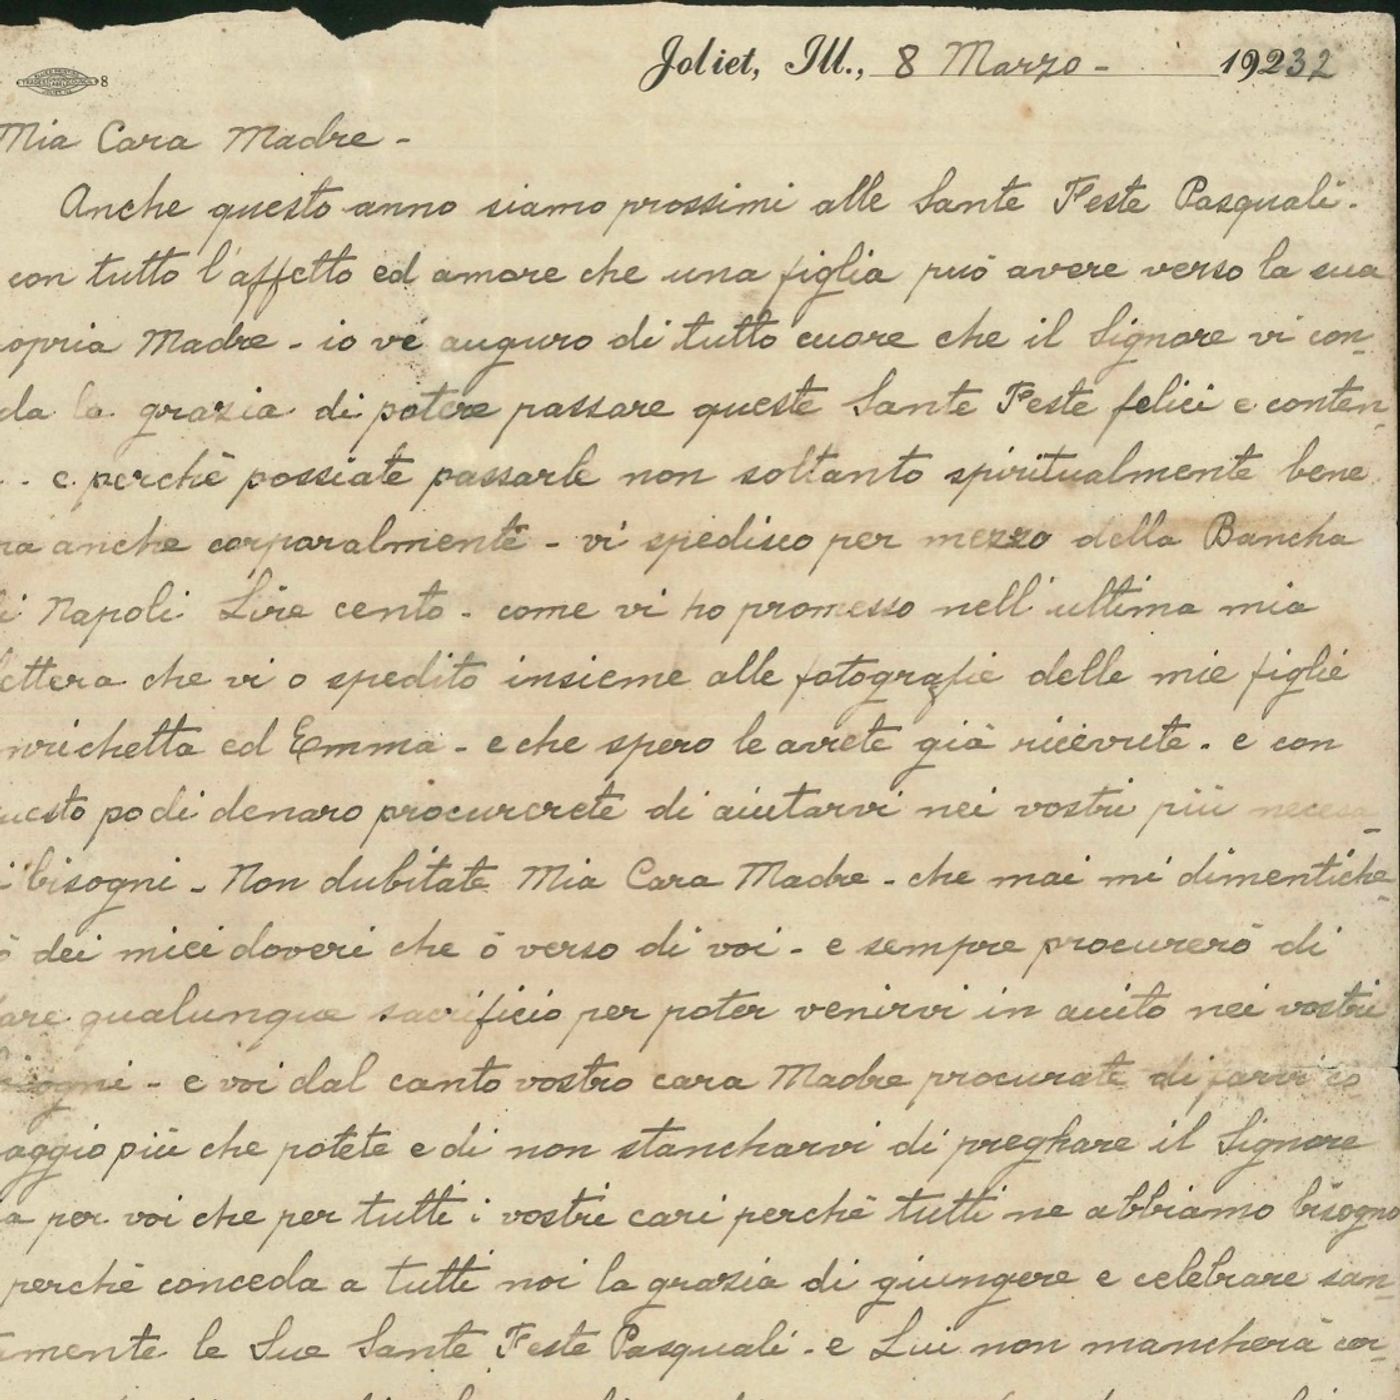 8
Joliet, Ill., 8 Marzo - 19232
Mia Cara Madre -
Anche questo anno siamo prossimi alle Sante Feste Pasquali.
con tutto l'affetto ed amore che una figlia può avere verso la sua
opria Madre - io vi auguro di tutto cuore che il Signore vi con-
da la grazia di potere passare queste Sante Feste felici e conten-
. e perchè possiate passarle non soltanto spiritualmente bene
ma anche corparalmente - vi spedisco per mezzo della Bancha
di Napoli Lire cento - come vi ho promesso nell'ultima mia
lettera che vi o spedito insieme alle fotografie delle mie figlie
nrichetta ed Emma - e che spero le avrete già ricevute. e con
uesto po di denaro procurerete di aiutarvi nei vostri più necessa-
i bisogni - Non dubitate Mia Cara Madre - che mai mi dimentiche-
ò dei miei doveri che ò verso di voi - e sempre procurerò di
fare qualunque sacrificio per poter venirvi in aiuto nei vostri
bisogni - e voi dal canto vostro cara Madre procurate di farvi co-
aggio più che potete e di non stancharvi di preghare il Signore
ia per voi che per tutti i vostri cari perchè tutti ne abbiamo bisogno
perchè conceda a tutti noi la grazia di giungere e celebrare san-
amente le Sue Sante Feste Pasquali - e Lui non mancherà cer-